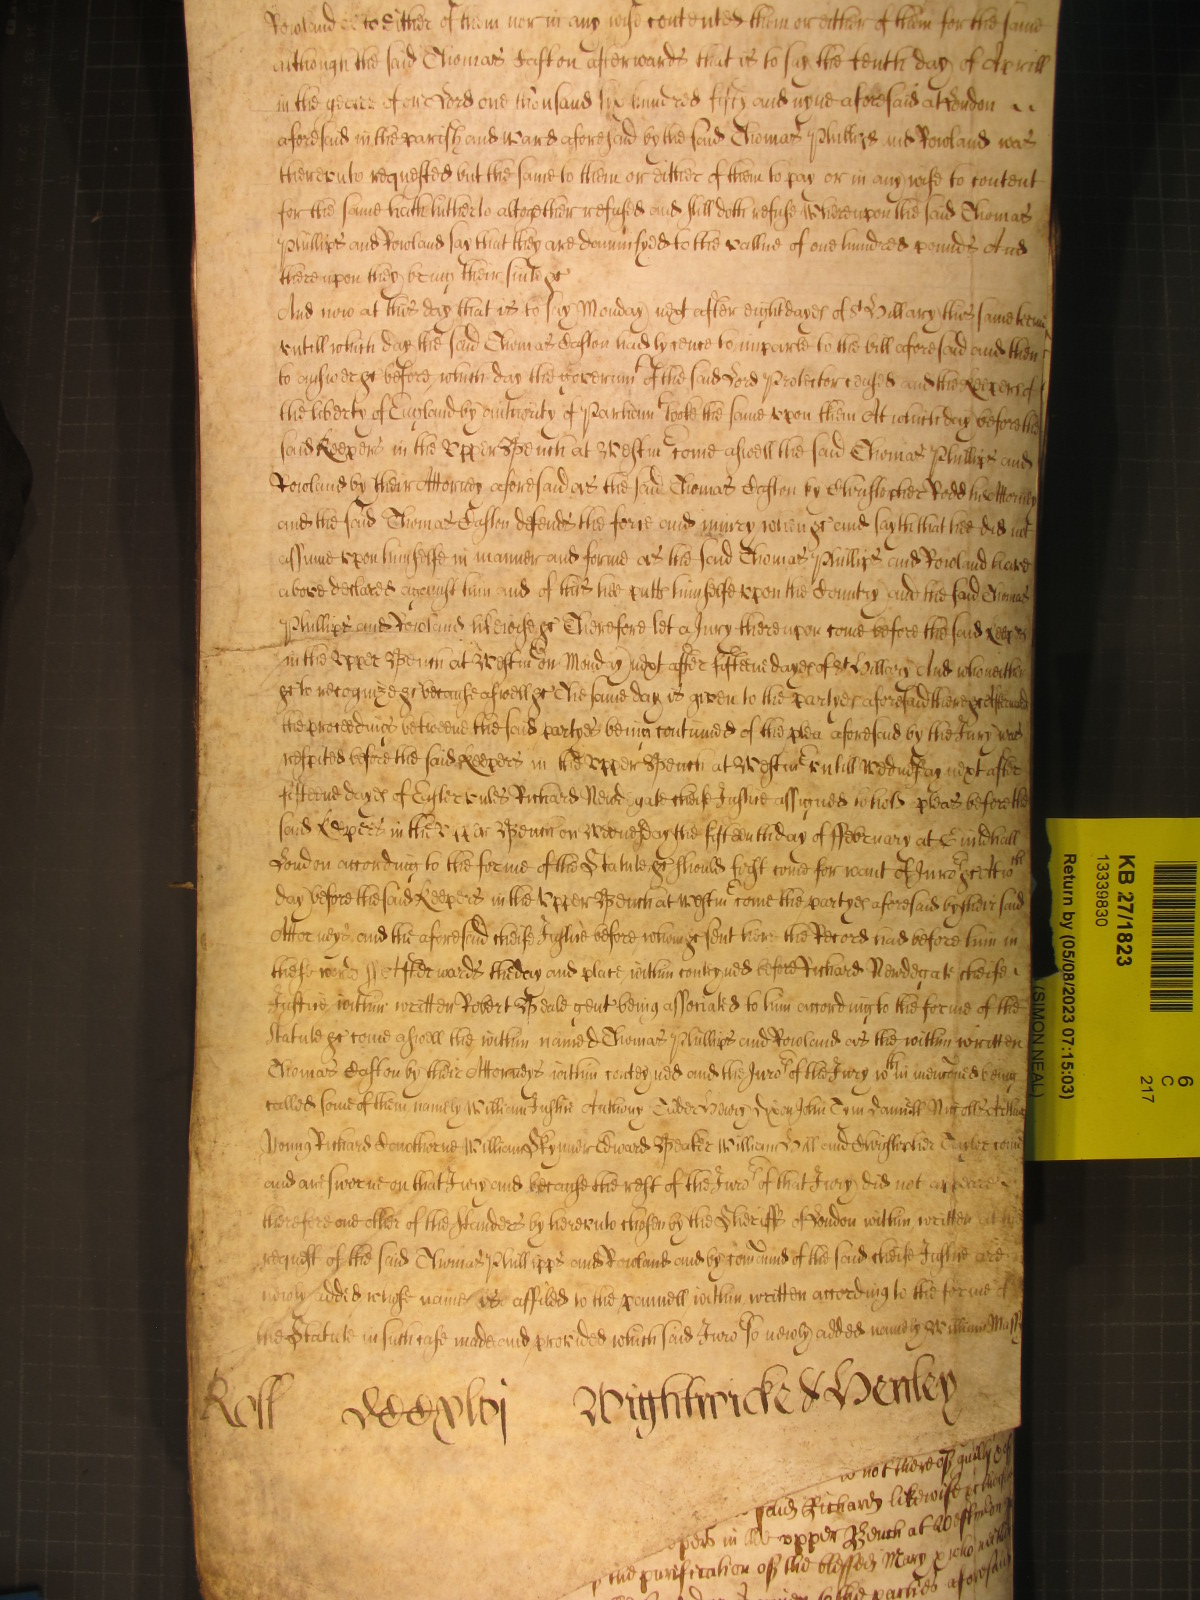 Rowland or to Either of them nor in any wise contented them or either of them for the same
although the said Thomas Easton afterwards that is to say the tenth day of Aprill
in the yeare of our Lord one thousand six hundred fifty and nyne aforesaid at London
aforesaid in the parish and Ward aforesaid by the said Thomas Phillips and Rowland was
thereunto requested but the same to them or either of them to pay or in any wise to content
for the same hath hitherto altogether refused and still doth refuse Whereupon the said Thomas
Phillips and Rowland say that they are dampnifyed to the vallue of one hundred pounds And
thereupon they bring their suite &c
And now at this day that is to say Monday next after eight dayes of St Hillary this same terme
untill which day the said Thomas Easton had lycence to imparle to the bill aforesaid and then
to answer &c before which day the governmt of the said Lord Protector ceased and the Keepers of
the liberty of England by authority of Parliamt tooke the same upon them At which day before the
said Keepers in the Upper Bench at Westmr come aswell the said Thomas Phillips and
Rowland by their Attorney aforesaid as the said Thomas Easton by Christopher Rodd his Attorney
and the said Thomas Easton defends the force and injury when &c and sayth that hee did not
assume upon himselfe in manner and forme as the said Thomas Phillips and Rowland have
above declared against him and of this hee putts himselfe upon the Country and the said Thomas
Phillips and Rowland likewise &c Therefore let a Jury thereupon come before the said Keepers
in the Upper Bench at Westmr on Monday next after fifteene dayes of St Hillary And who neither
&c to recognize &c because aswell &c The same day is given to the partyes aforesaid there &c Afterwards
the proceedings betweene the said partyes being continued of the plea aforesaid by the Jury was
respited before the said Keepers in the Upper Bench at Westmr untill Wednesday next after
fifteene dayes of Easter unles Richard Newdegate cheife Justice assigned to hold pleas before the
said Keepers in the Upper Bench on Wednesday the fifteenth day of ffebruary at Guildhall
London according to the forme of the Statute &c should first come for want of Jurors &c Att wch
day before the said Keepers in the Upper Bench at Westmr come the partyes aforesaid by their said
Attorneys and the aforesaid cheife Justice before whom &c sent here the Record had before him in
these words ss Afterwards the day and place within conteyned before Richard Newdegate cheife
Justice within written Robert Beale gent being associated to him according to the forme of the
Statute &c come aswell the within named Thomas Phillips and Rowland as the within written
Thomas Easton by their Attorneys within conteyned and the Jurors of the Jury wthin mencioned being
called some of them namely William Justice Anthony Henry Dixon John Tym Daniell Nicolls
Young Richard William Skynner Edward Baker William Hill and Christopher Tayler come
and are sworne on that Jury and because the rest of the Jurors of that Jury did not appeare
therefore one other of the standers by hereunto chosen by the Sheriffs of London within written at the
request of the said Thomas Phillipps and Rowland and by comaund of the said cheife Justice are
newly added whose name is affiled to the pannell within written according to the forme of
the Statute in such case made and provided which said Juror so newly added namely William
Roll Wightwicke & Henley
is not thereof guilty
said Richard likewise &c
in the upper Bench at Westm
the purification of the blessed Mary &
to the parties aforesaid
6
C
217
KB 27/1823
13339830
Return by (05/08/2023 07:15:03)
(SIMON NEAL)